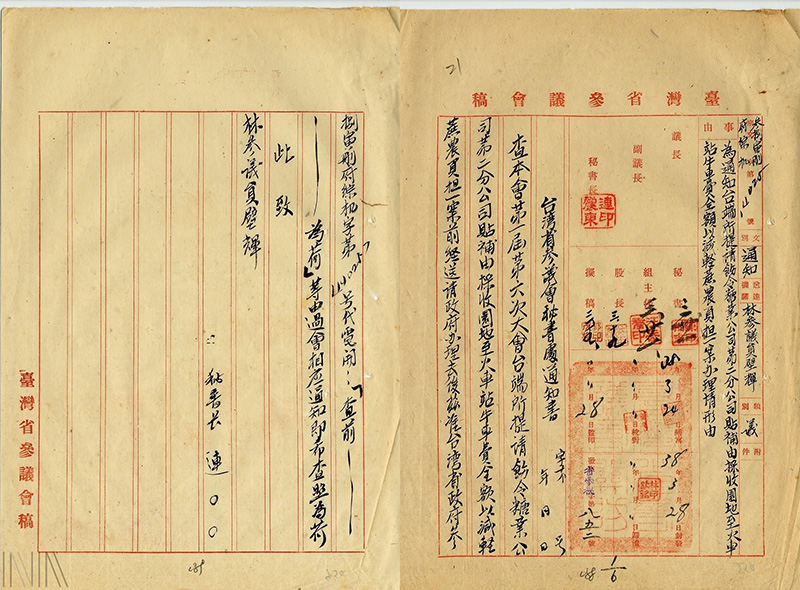 21
臺灣省參議會稿
事由
為通知台端所提請飭令糖業公司第二分公司貼補由採收園地至火車
站牛車費全額以減輕蔗農負担一案办理情形由
文別
通知
送達機關
林參議員壁輝
類別
議
附件
議長
副議長
秘書長
連印震東
秘書
組主
股長
擬稿
38年3月28日封發
3月24日
28日
八五二號
台灣省參議會秘書處通知書
字第 号
年 月 日
查本會第一屆第六次大會台端所提請飭令糖業公
司第二分公司貼補由採收園地至火車站牛車費全額以減輕
蔗農負担一案前經送請政府办理去後茲准台灣省政府參
府綜机字第 号代電開：「查前——
——為荷」等由過會相应通知即希查照為荷
此致
林參議員壁輝
秘書長 連〇〇
臺灣省參議會稿